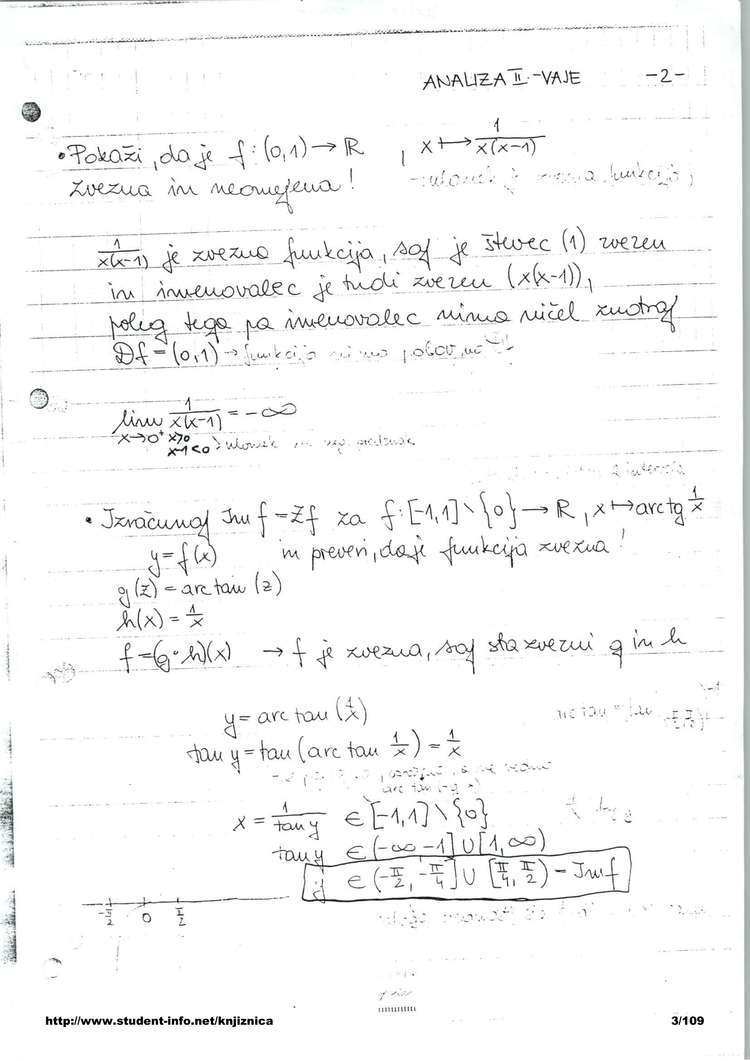 ANALIZA II.-VAJE -2-
• Pokaži, da je f: (0,1) → ℝ, x ↦ 1/x(x-1)
zvezna in neomejena!
1/x(x-1) je zvezna funkcija, saj je števec (1) zvezen
in imenovalec je tudi zvezen (x(x-1)),
poleg tega pa imenovalec nima ničel znotraj
Df = (0,1) → funkcija nima polov
lim 1/x(x-1) = -∞
x→0⁺ x>0
x-1<0 } ulomek
• Izračunaj Im f = Zf za f: [-1,1] \ {0} → ℝ, x ↦ arctg 1/x
y = f(x) in preveri, da je funkcija zvezna!
g(z) = arc tan (z)
h(x) = 1/x
f = (g∘h)(x) → f je zvezna, saj sta zvezni g in h
y = arc tan (1/x)
tan y = tan (arc tan 1/x) = 1/x
x = 1/tan y ∈ [-1,1] \ {0}
tan y ∈ (-∞ -1] ∪ [1, ∞)
y ∈ (-π/2, -π/4] ∪ [π/4, π/2) - Im f
-π/2 0 π/2
http://www.student-info.net/knjiznica 3/109